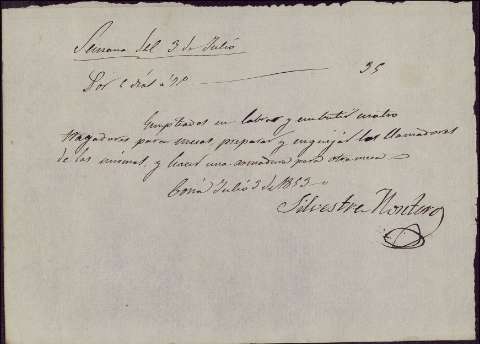 Semana del 3 de Julio
Por 5 dias á 7 r 35
Empleados en labrar y embutir cuatro
tragadores para mesas, preparar y enguijar los llamadores
de las mismas, y hacer una armadura para otra mesa
Coria Julio 3 de 1853
Silvestre Montero